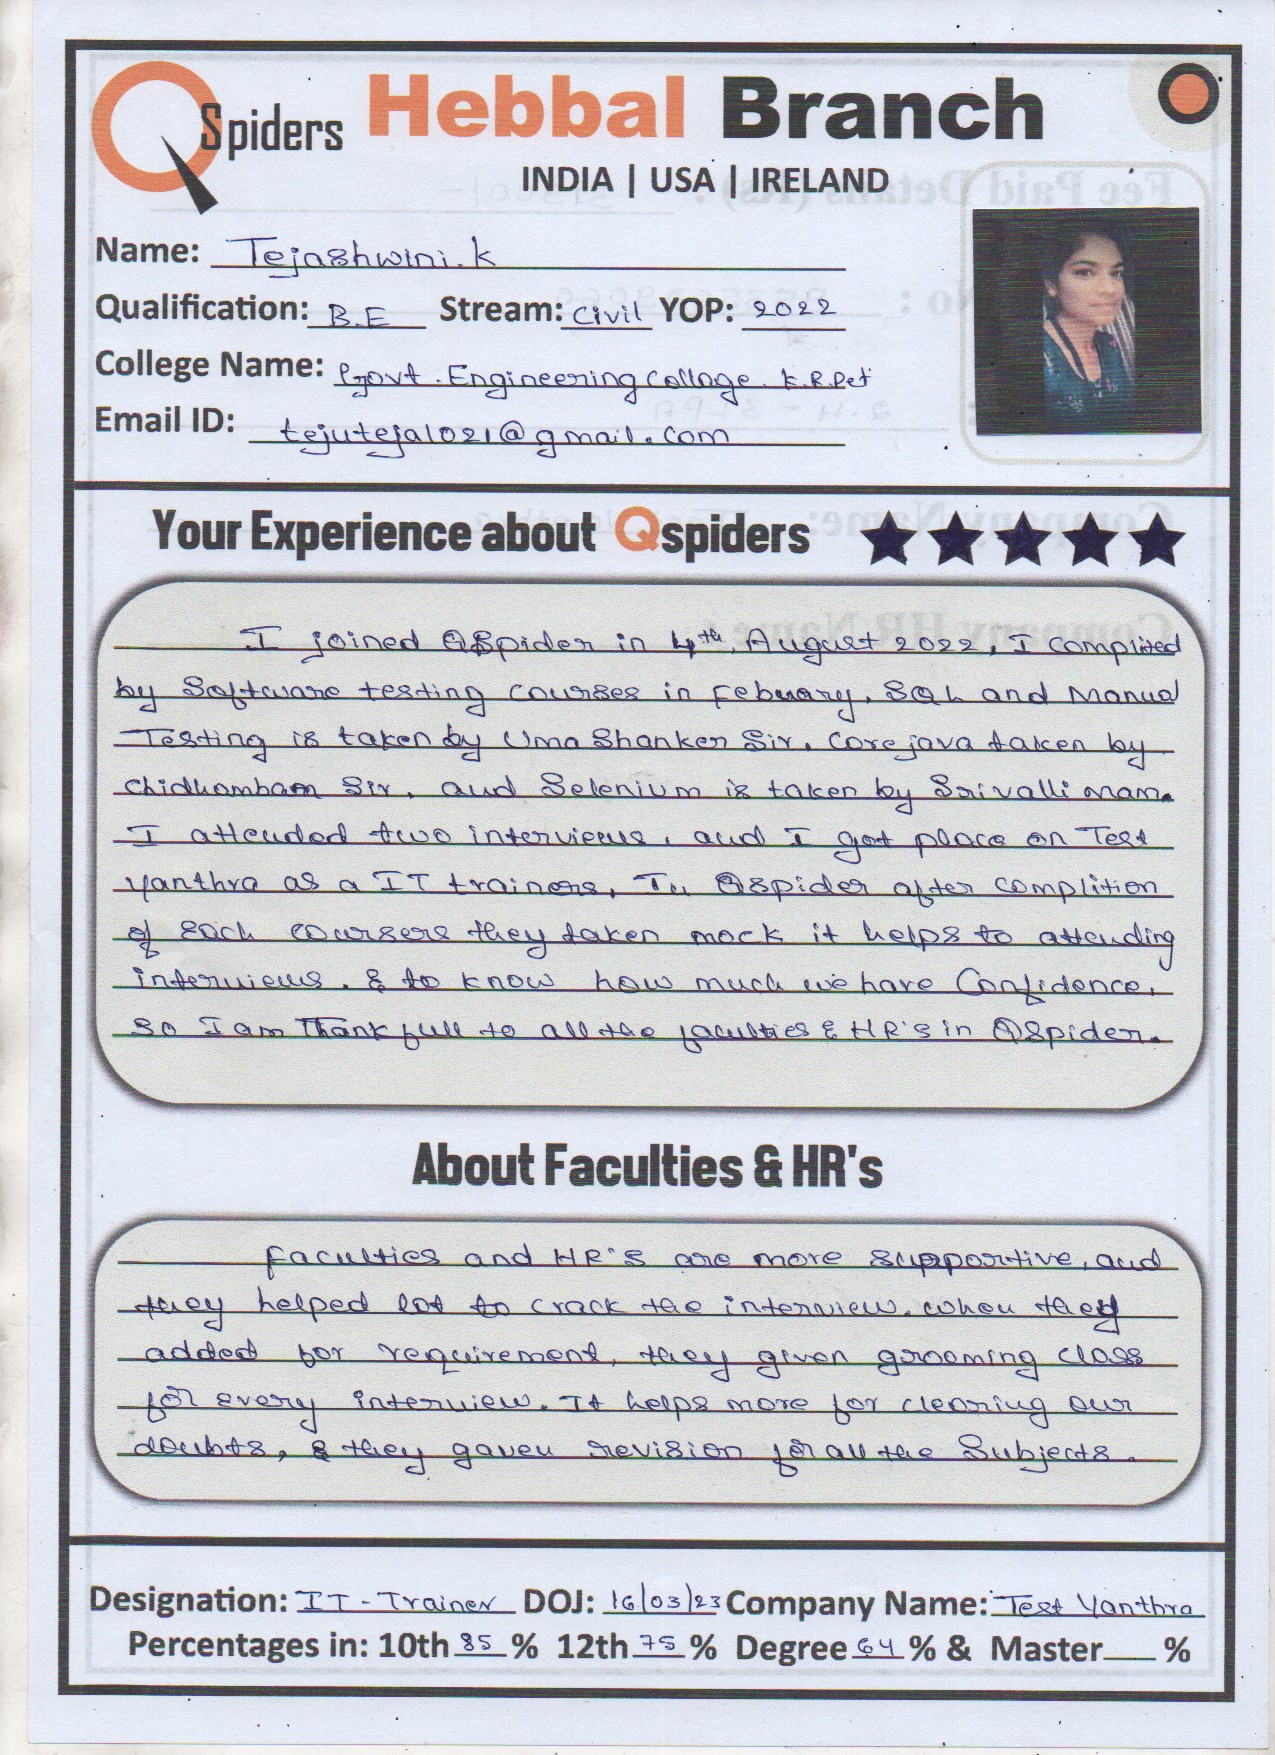 QSpiders Hebbal Branch
INDIA | USA | IRELAND
Name: Tejashwini.k
Qualification: B.E Stream: Civil YOP: 2022
College Name: Govt. Engineering College. K.R.Pet
Email ID: tejuteja1021@gmail.com
Your Experience about Qspiders
I joined QSpider in 4th August 2022, I complited
by Software testing courses in Febuary. SQL and Manual
Testing is taken by Uma Shanker Sir, Core java taken by
Chidhambam Sir, and Selenium is taken by Srivalli mam.
I attended two interviews, and I got place on Test
Yanthra as a IT trainers, In QSpider after complition
of each coursers they taken mock it helps to attending
interviews. & to know how much we have Confidence,
So I am Thankfull to all the faculties & HR's in QSpider.
About Faculties & HR's
Faculties and HR's are more supportive, and
they helped lot to crack the interview. when they
added for requirement, they given grooming class
for every interview. It helps more for clearing our
doubts, & they gaven revision for all the Subjects.
Designation: IT-Trainer DOJ: 16/03/23 Company Name: Test Yanthra
Percentages in: 10th 85 % 12th 75 % Degree 64 % & Master %